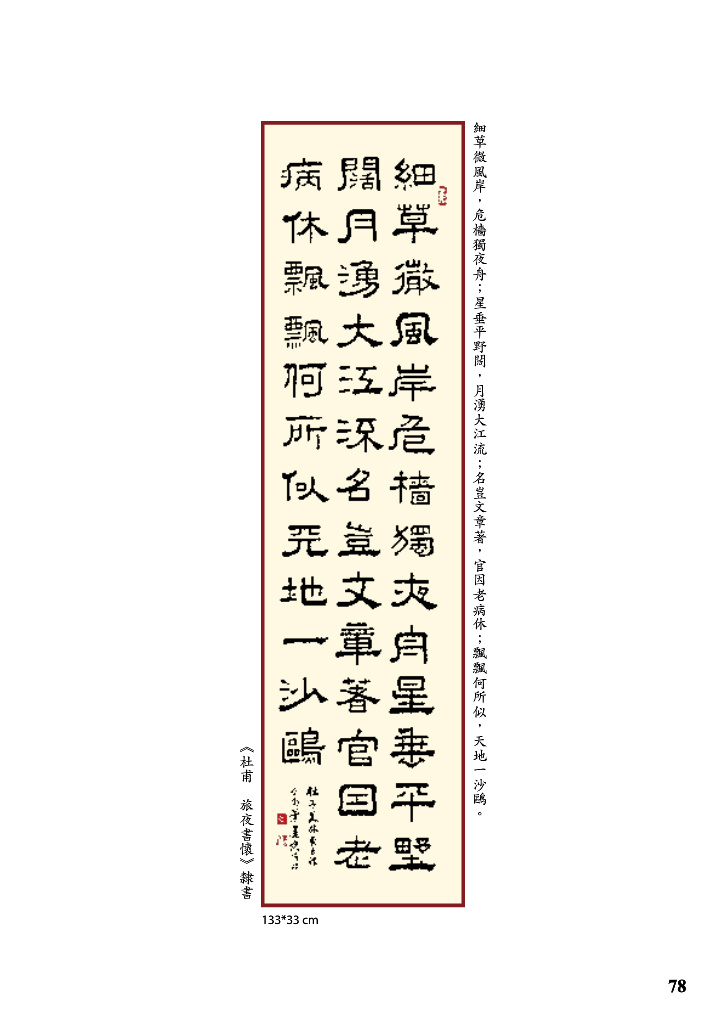 細草微風岸，危檣獨夜舟；星垂平野闊，月湧大江流；名豈文章著，官因老病休；飄飄何所似，天地一沙鷗。
細草微風岸危檣獨夜舟星垂平野
闊月湧大江流名豈文章著官因老
病休飄飄何所似天地一沙鷗
《杜甫　旅夜書懷》隸書
133*33 cm
78